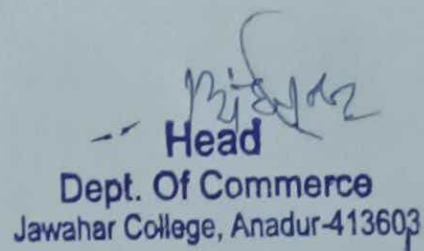 Head
Dept. Of Commerce
Jawahar College, Anadur-413603